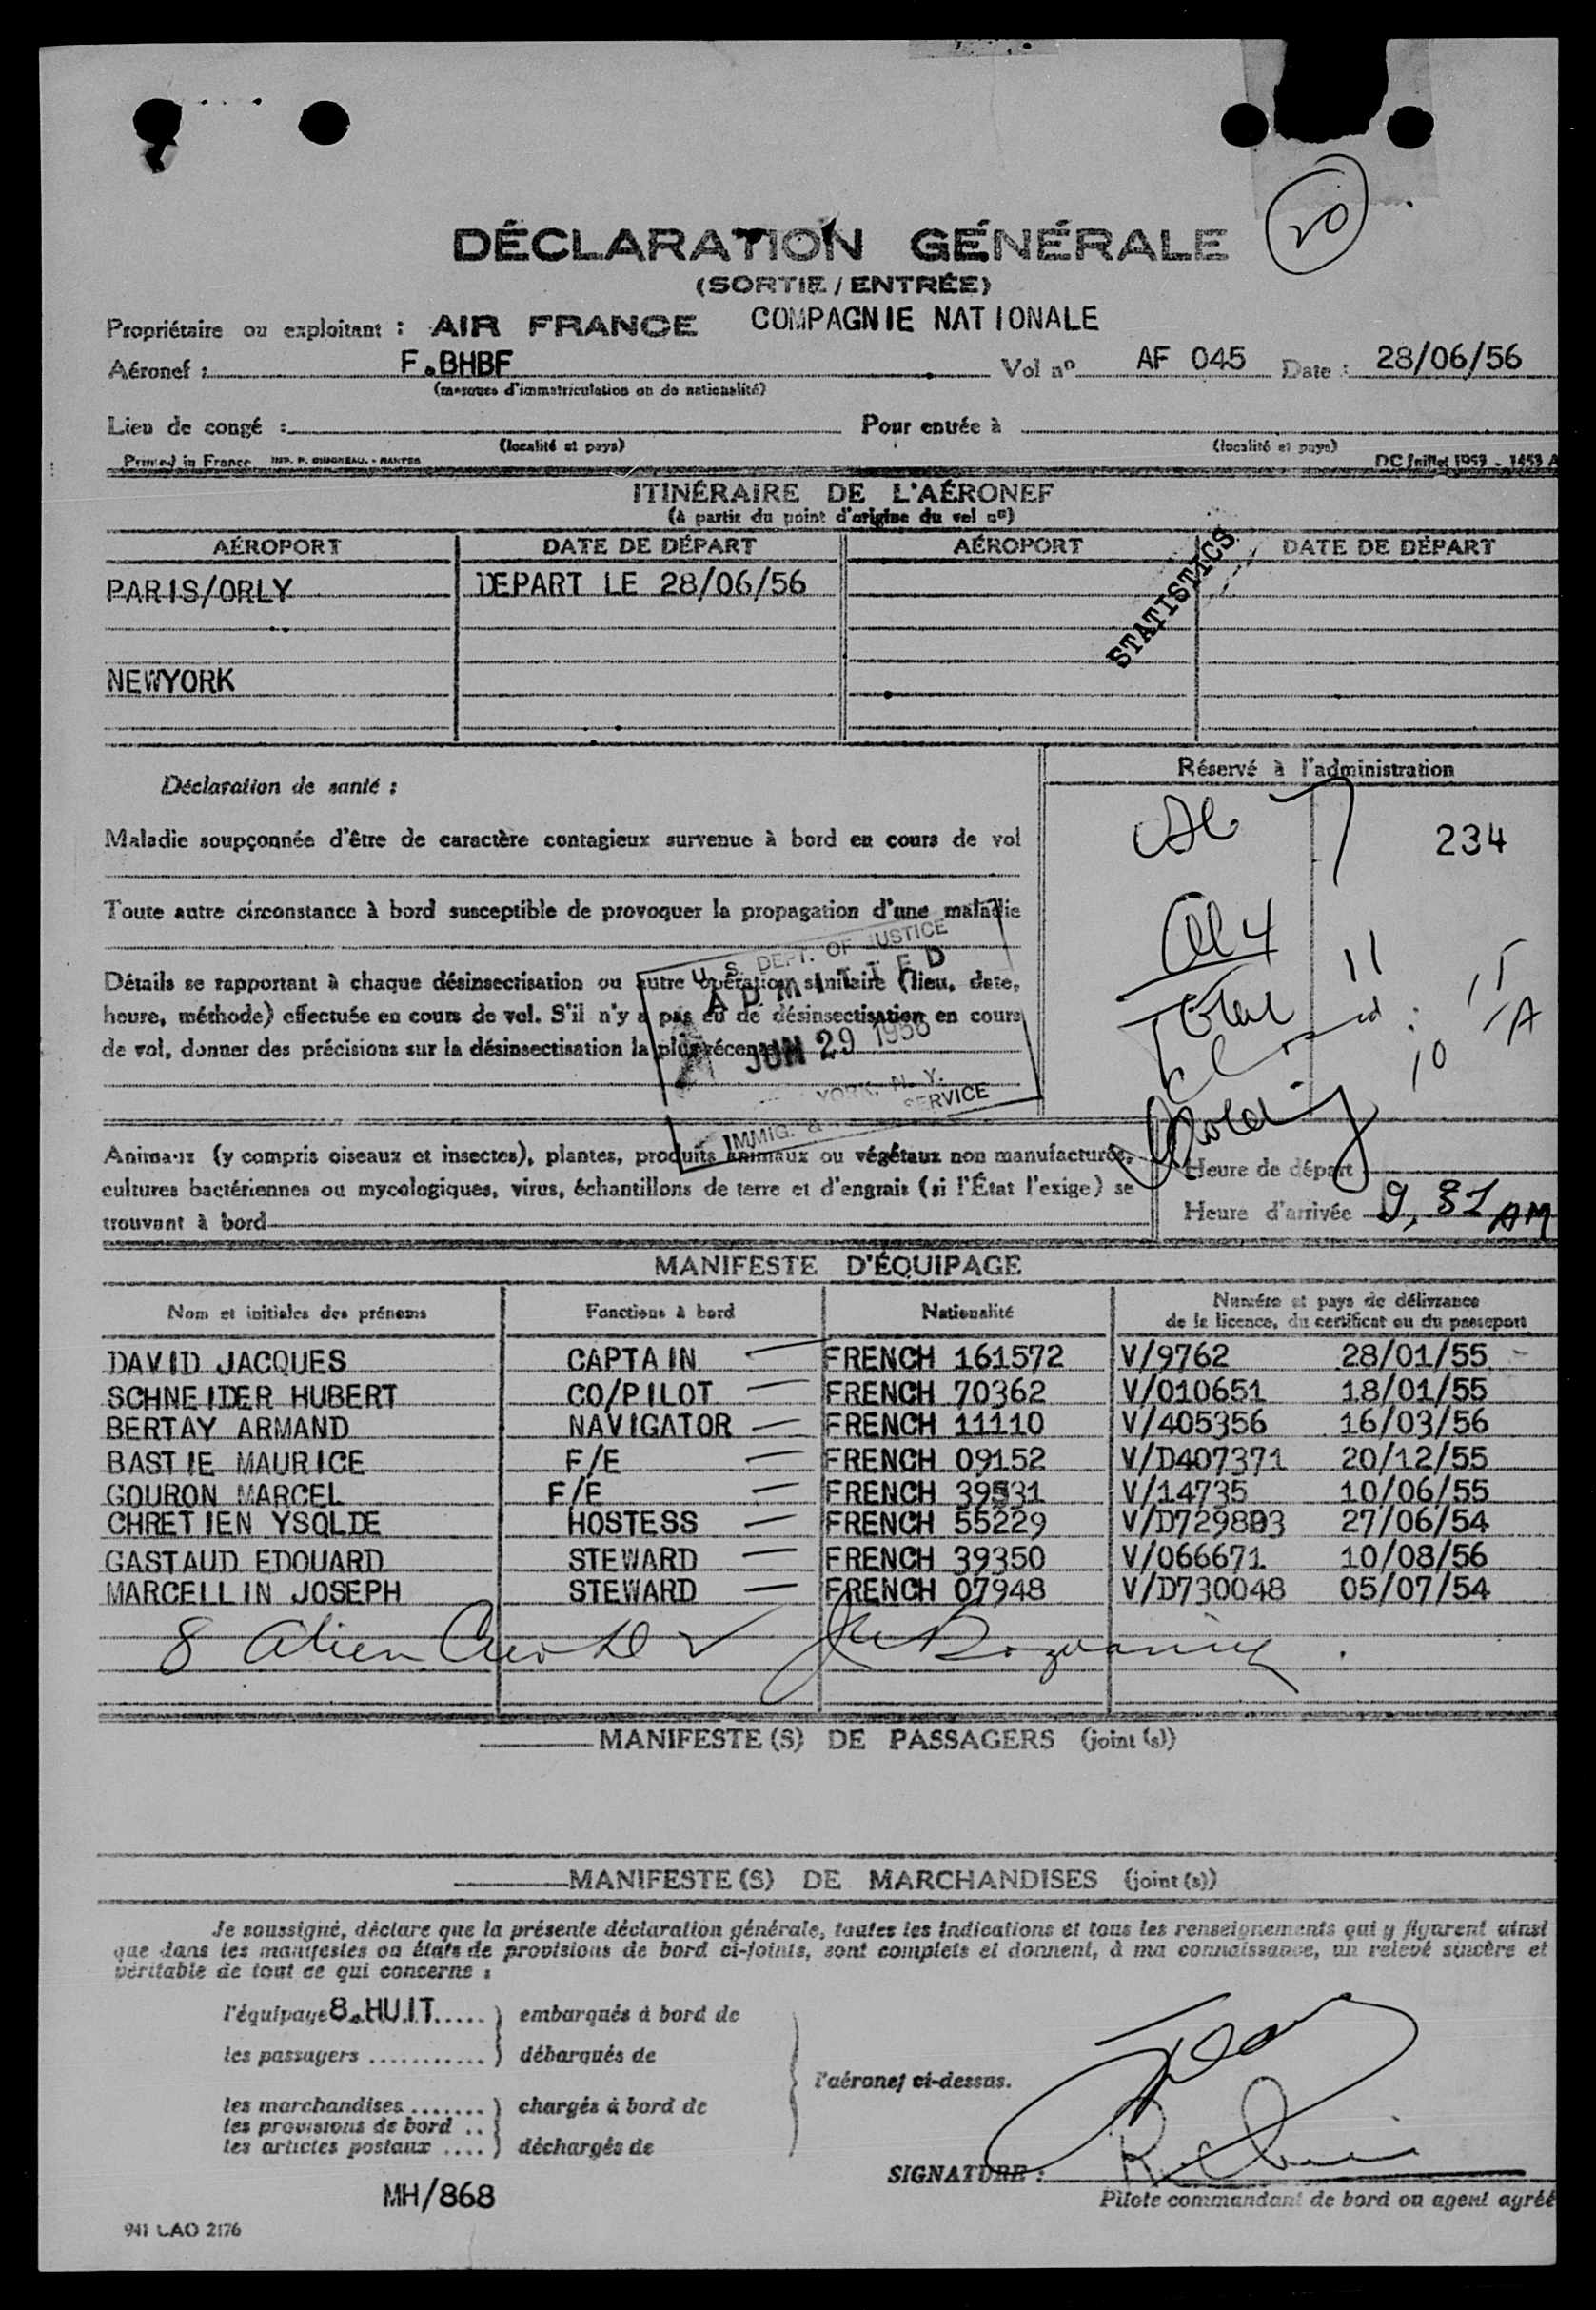 20
DÉCLARATION GÉNÉRALE
(SORTIE / ENTRÉE)
Propriétaire ou exploitant : AIR FRANCE COMPAGNIE NATIONALE
Aéronef : F.BHBF Vol nº AF 045 Date : 28/06/56
(marques d'immatriculation ou de nationalité)
Lieu de congé : Pour entrée à
(localité et pays) (localité et pays)
Printed in France IMP. P. - NANTES DC Juillet 1953 - 1453 A
ITINÉRAIRE DE L'AÉRONEF
(à partir du point d'origine du vol nº)
AÉROPORT DATE DE DÉPART AÉROPORT DATE DE DÉPART
STATISTICS
PARIS/ORLY DEPART LE 28/06/56
NEWYORK
Réservé à l'administration
Déclaration de santé :
7 234
Maladie soupçonnée d'être de caractère contagieux survenue à bord en cours de vol
Toute autre circonstance à bord susceptible de provoquer la propagation d'une maladie
4
Total 11
Détails se rapportant à chaque désinsectisation ou autre opération sanitaire (lieu, date,
heure, méthode) effectuée en cours de vol. S'il n'y a pas eu de désinsectisation en cours
de vol, donner des précisions sur la désinsectisation la plus récente
U. S. DEPT. OF JUSTICE
ADMITTED
JUN 29 1956
YORK, N. Y.
IMMIG. & SERVICE
Animaux (y compris oiseaux et insectes), plantes, produits animaux ou végétaux non manufacturés,
cultures bactériennes ou mycologiques, virus, échantillons de terre et d'engrais (si l'État l'exige) se
trouvant à bord
Heure de départ
Heure d'arrivée AM
MANIFESTE D'ÉQUIPAGE
Nom et initiales des prénoms Fonctions à bord Nationalité Numéro et pays de délivrance
de la licence, du certificat ou du passeport
DAVID JACQUES CAPTAIN FRENCH 161572 V/9762 28/01/55
SCHNEIDER HUBERT CO/PILOT FRENCH 70362 V/010651 18/01/55
BERTAY ARMAND NAVIGATOR FRENCH 11110 V/405356 16/03/56
BASTIE MAURICE F/E FRENCH 09152 V/D407371 20/12/55
GOURON MARCEL F/E FRENCH 39531 V/14735 10/06/55
CHRETIEN YSOLDE HOSTESS FRENCH 55229 V/D729803 27/06/54
GASTAUD EDOUARD STEWARD FRENCH 39350 V/066671 10/08/56
MARCELLIN JOSEPH STEWARD FRENCH 07948 V/D730048 05/07/54
8 alien Crew
MANIFESTE (S) DE PASSAGERS (joint (s))
MANIFESTE (S) DE MARCHANDISES (joint (s))
Je soussigné, déclare que la présente déclaration générale, toutes les indications et tous les renseignements qui y figurent ainsi
que dans les manifestes ou états de provisions de bord ci-joints, sont complets et donnent, à ma connaissance, un relevé sincère et
véritable de tout ce qui concerne :
l'équipage 8.HUIT..... ) embarqués à bord de
les passagers ........... ) débarqués de
l'aéronef ci-dessus.
les marchandises ....... ) chargés à bord de
les provisions de bord ..
les articles postaux .... ) déchargés de
SIGNATURE :
MH/868
Pilote commandant de bord ou agent agréé
941 CAO 2176